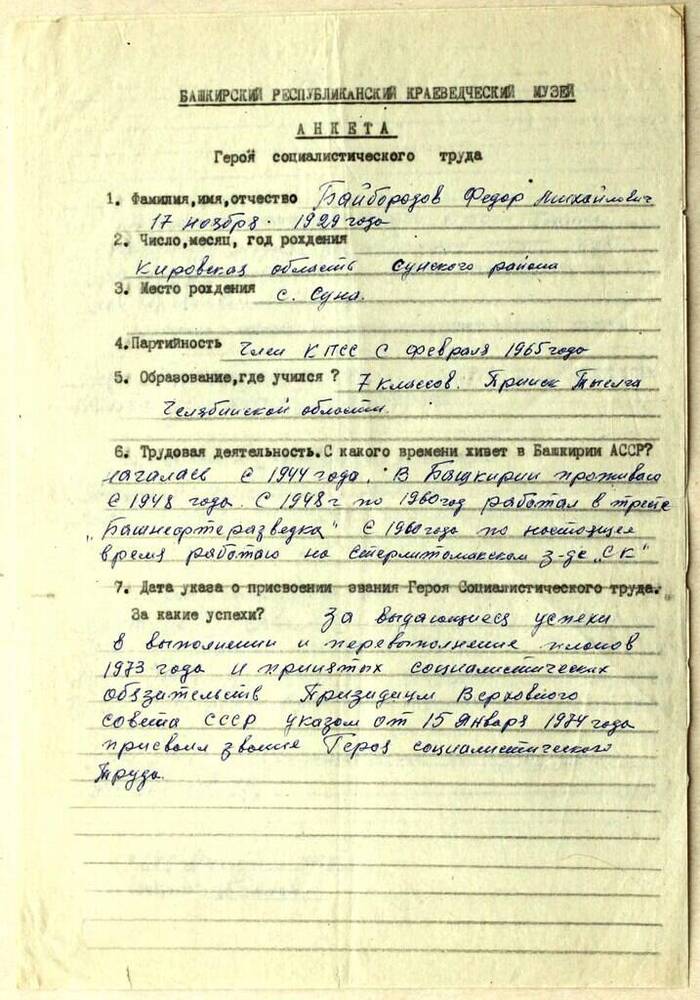 БАШКИРСКИЙ РЕСПУБЛИКАНСКИЙ КРАЕВЕДЧЕСКИЙ МУЗЕЙ
АНКЕТА
Героя социалистического труда
1. Фамилия,имя,отчество Байбородов Федор Михайлович
17 ноября. 1929 года
2. Число,месяц, год рождения
Кировская область Сунского района
3. Место рождения с. Суна.
4.Партийность Член КПСС с февраля 1965 года
5. Образование,где учился? 7 классов. Прииск Тыелга
Челябинской области.
6. Трудовая деятельность.С какого времени живет в Башкирии АССР?
началась с 1944 года. В Башкирии проживаю
с 1948 года. С 1948 г по 1960 год работал в тресте
„Башнефтеразведка" с 1960 года по настоящее
время работаю на стерлитомакском з-де „СК"
7. Дата указа о присвоении звания Героя Социалистического труда.
За какие успехи? За выдающиеся успехи
в выполнении и перевыполнение планов
1973 года и принятых социалистических
обязательств Призидиум Верховного
совета СССР указом от 15 января 1974 года
присвоил звание Героя социалистического
Труда.